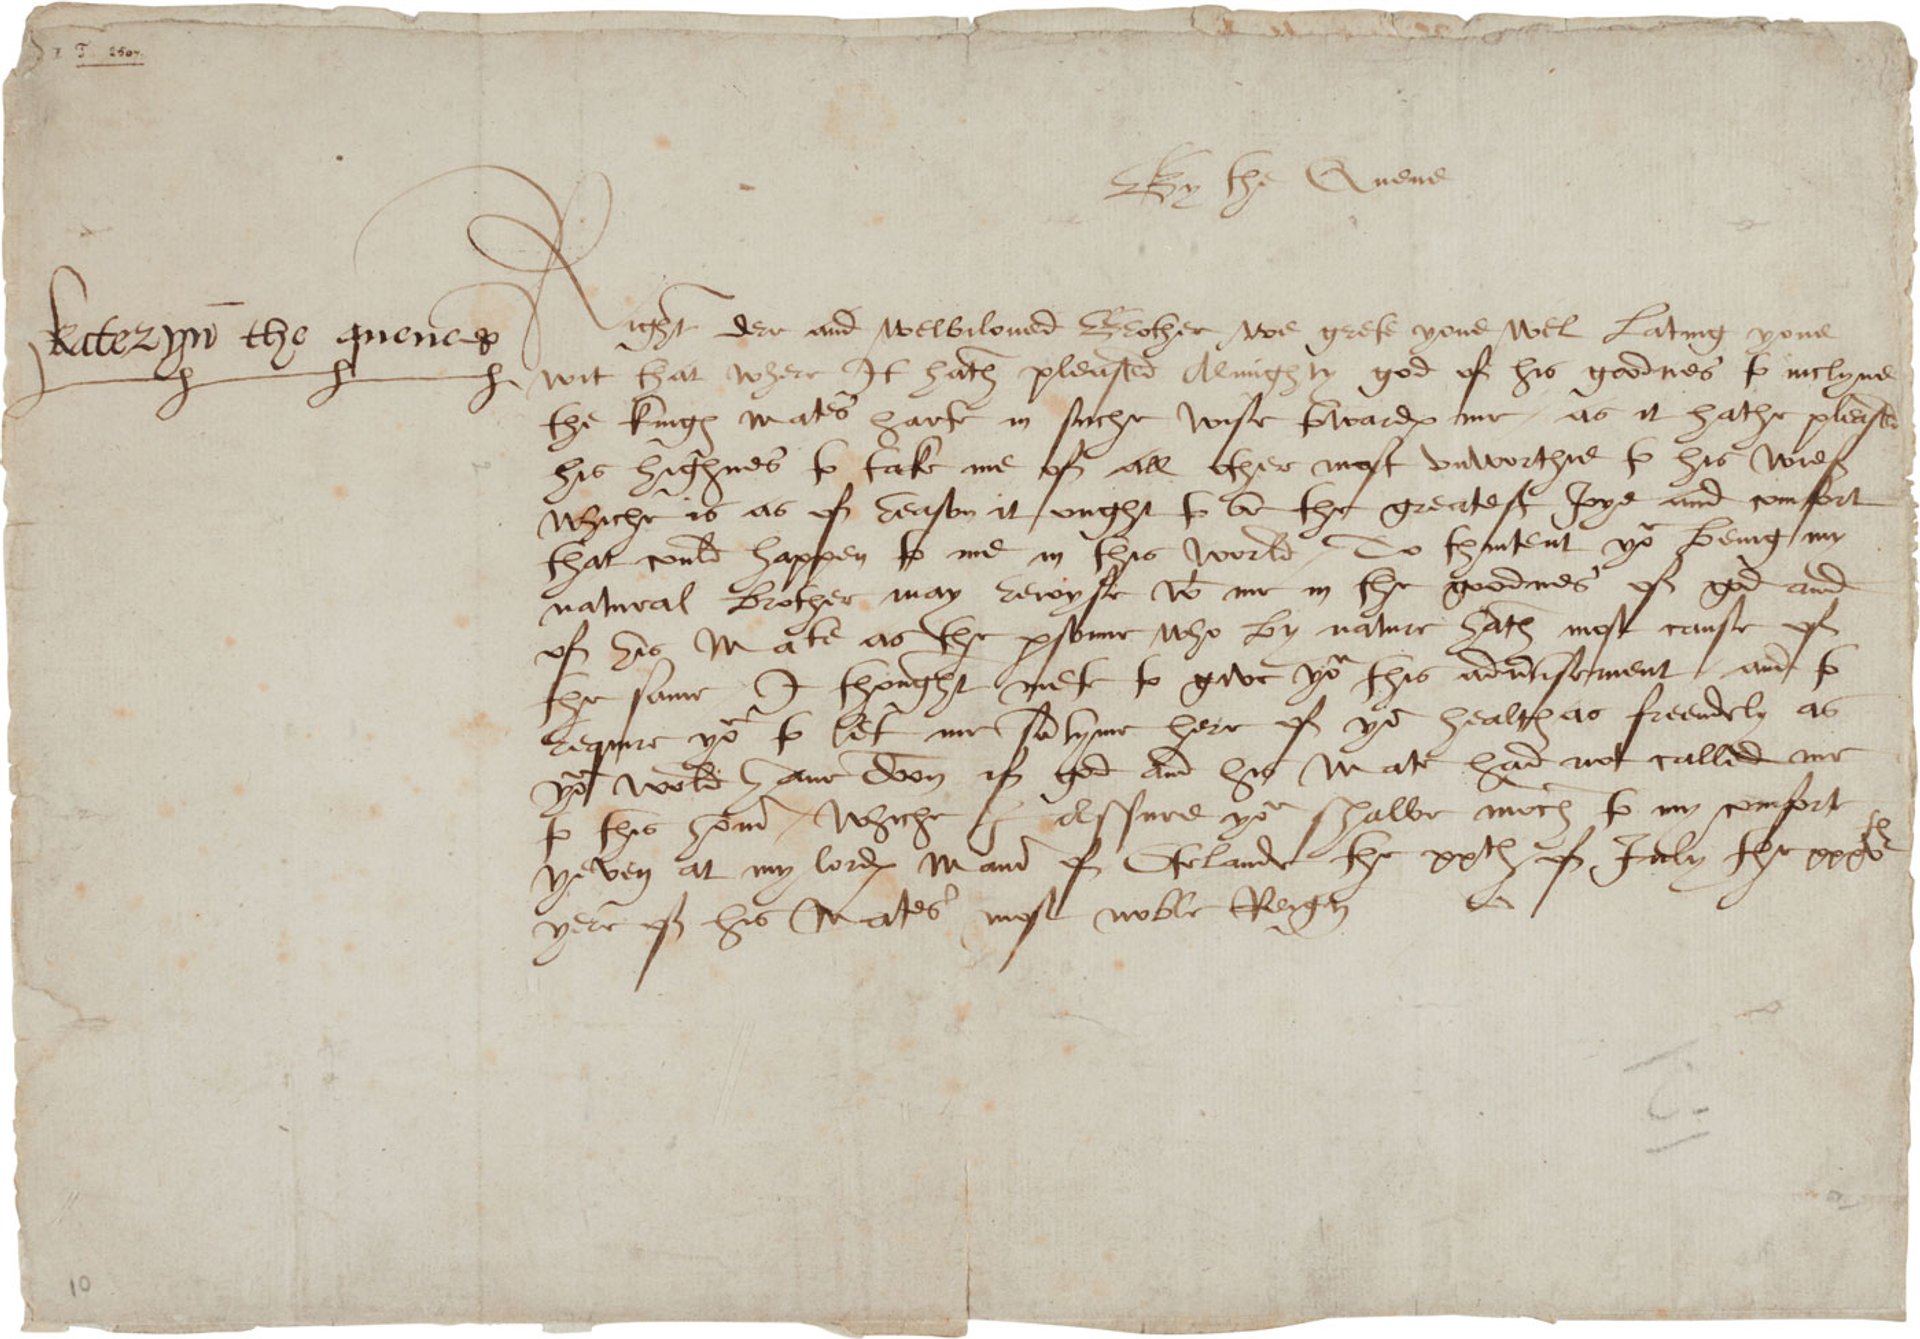 7 T 2507
By the Quene
Kateryn the quene
Right dere and welbiloued Brother we grete youe wel Lating youe
wit that where It hath pleased Almighty god of his goodnes to inclyne
the kings Mates harte in suche wise towards me as it hathe pleased
his highnes to take me of all other most vnworthie to his wief
whiche is as of reason it ought to be the greatest Joye and comfort
that could happen to me in this world To thintent yor being my
natural Brother may reioyse wt me in the goodnes of god and
of his Mate as the psonne who by nature hath most cause of
the same I thought mete to give yor this aduertisement and to
require yor to let me sotyme here of yor health as freendely as
yor wold haue doon if god and his Mate had not called me
to this honor whiche I assure yor shalbe moch to my comfort
yeven at my lords Manor of Otelande the xxth of July the xxxvth
yere of his Mates most noble Reign
10